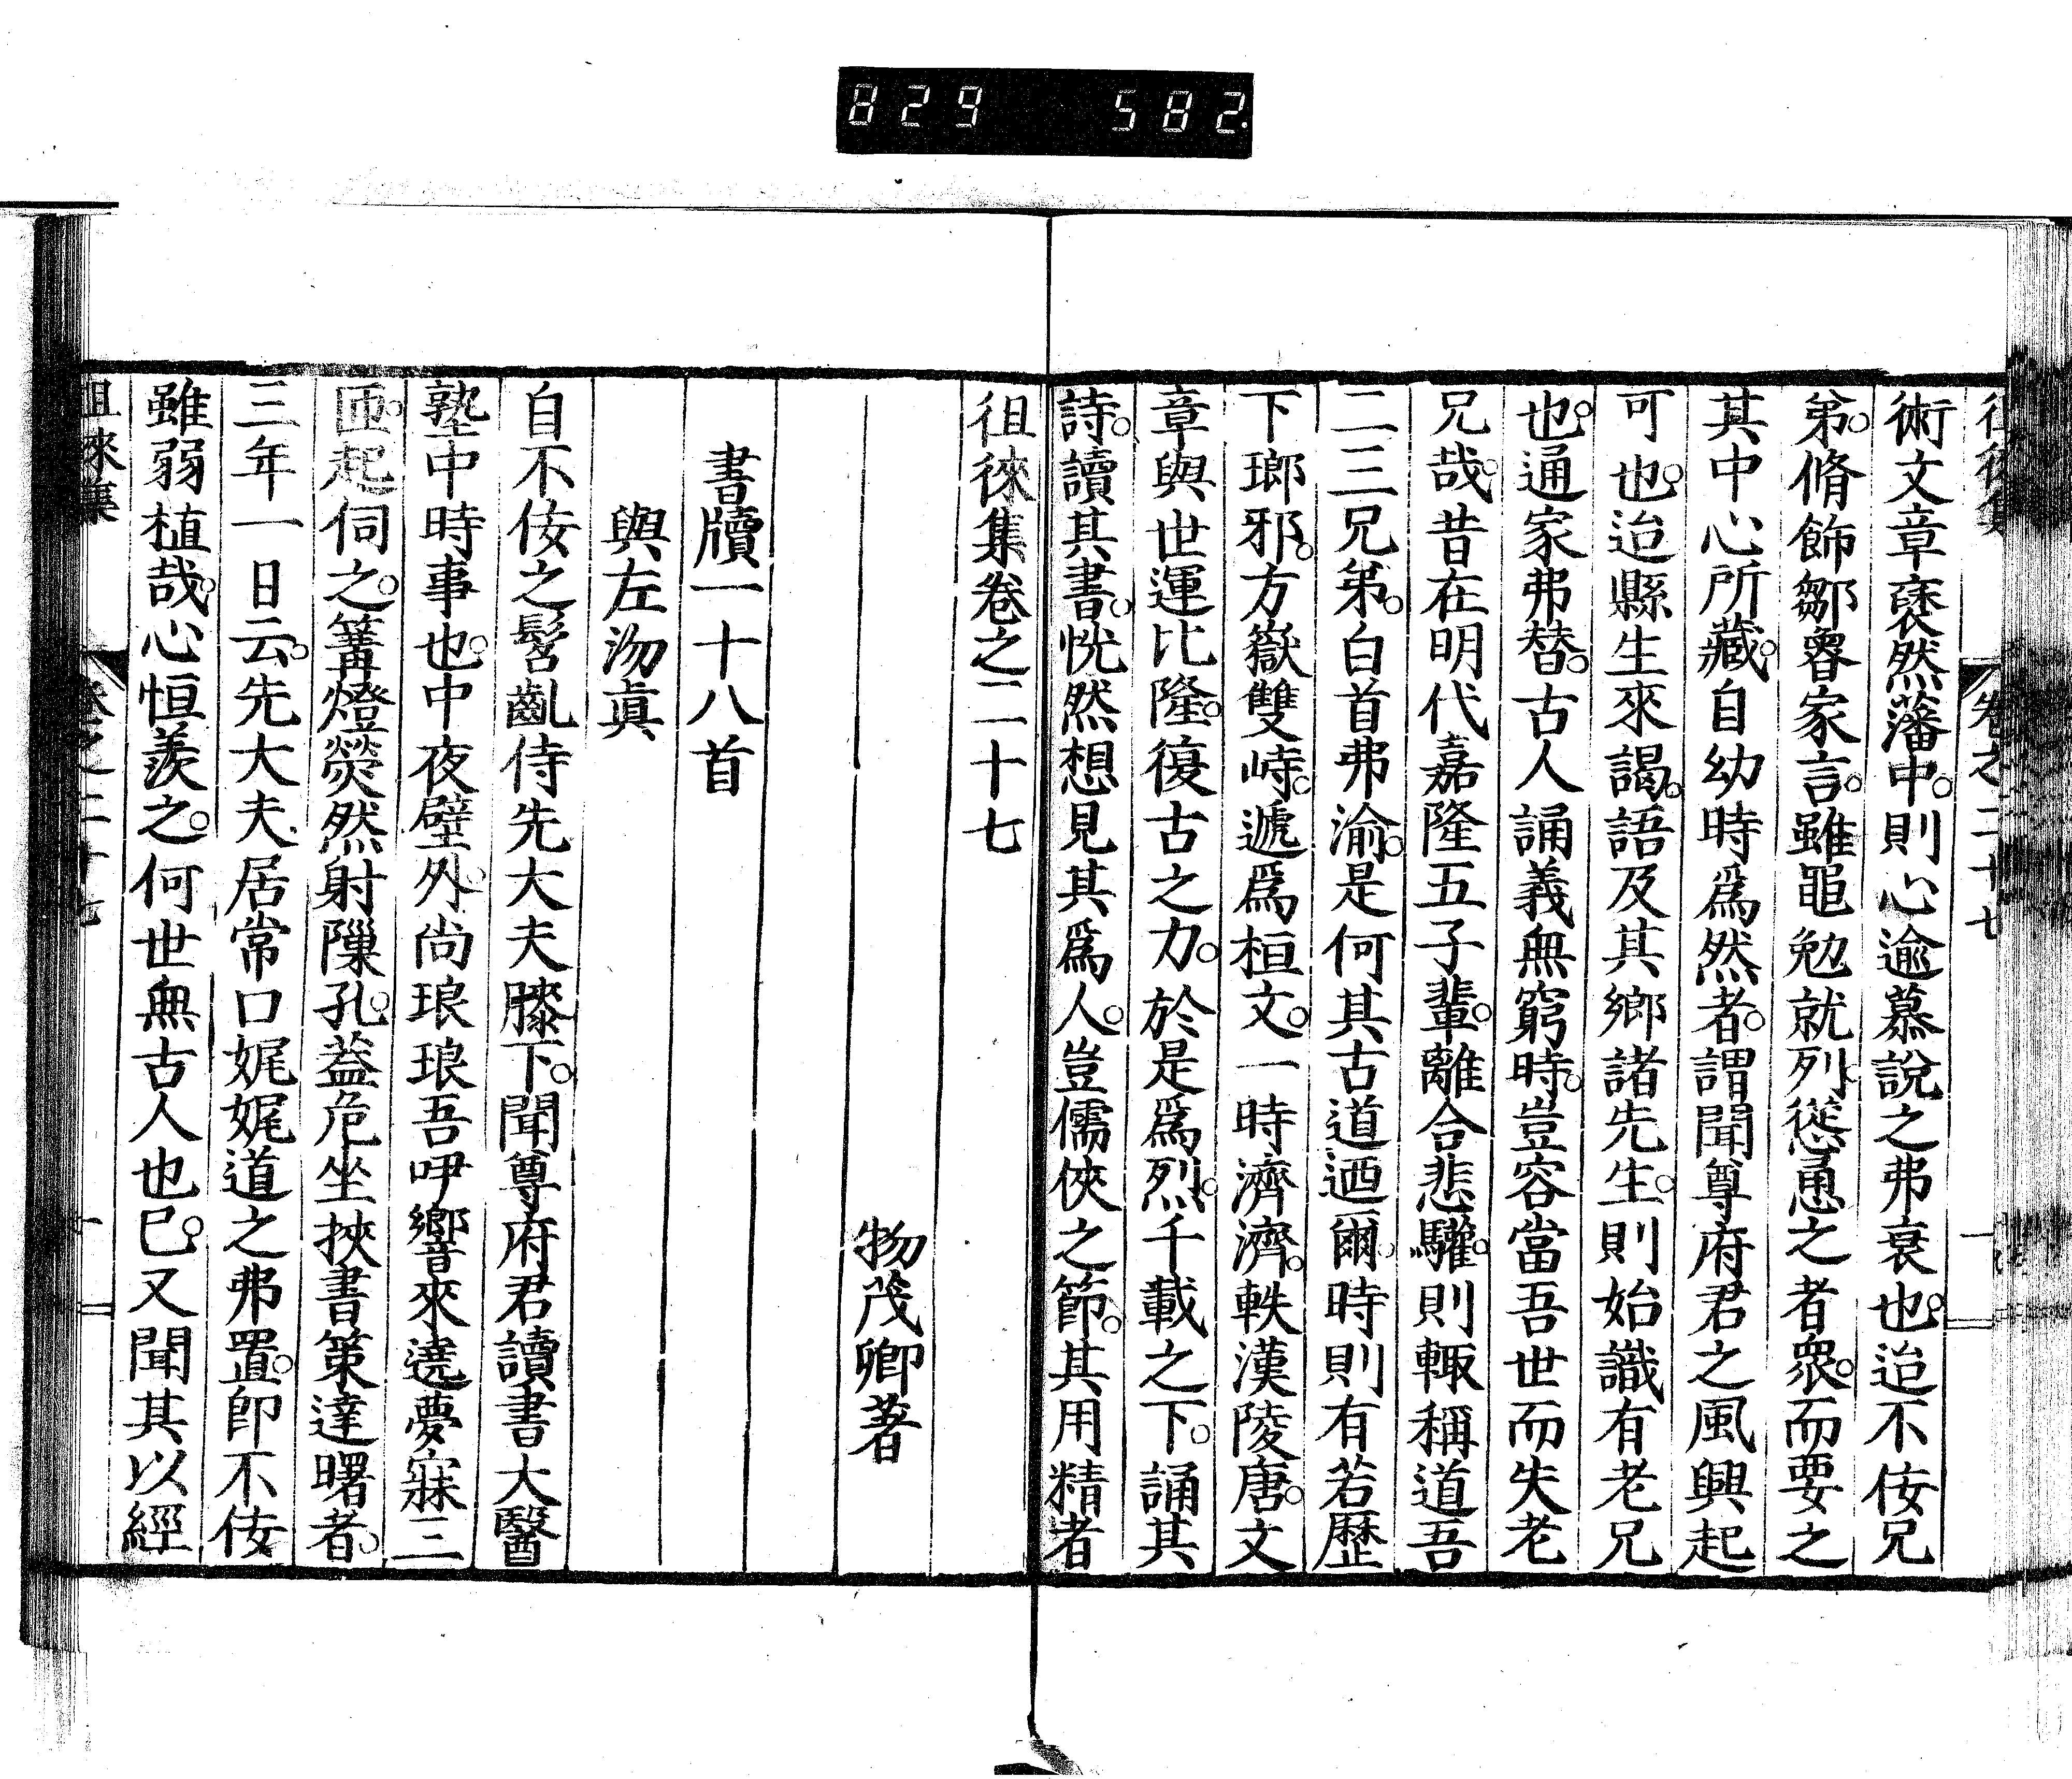 829 582
術文章裒然藩中。則心逾慕說之弗衰也。迨不佞兄
弟。脩飾鄒魯家言。雖黽勉就列。慫慂之者衆。而要之
其中心所藏。自幼時爲然者。謂聞尊府君之風興起
可也。迨縣生來謁。語及其鄉諸先生。則始識有老兄
也。通家弗替。古人誦義無窮時。豈容當吾世而失老
兄哉。昔在明代嘉隆五子輩。離合悲驩。則輙稱道吾
二三兄弟。白首弗渝。是何其古道迺爾。時則有若歷
下瑯邪。方嶽雙峙。遞爲桓文。一時濟濟。軼漢陵唐。文
章與世運比隆。復古之力。於是爲烈。千載之下。誦其
詩。讀其書。恍然想見其爲人。豈儒俠之節。其用精者
徂徠集卷之二十七
物茂卿著
書牘一十八首
與左沕眞
自不佞之髫齓侍先大夫膝下。聞尊府君讀書大醫
塾中時事也。中夜壁外。尚琅琅吾咿響來遶夢寐三
匝。起伺之。篝燈熒然射隟孔。葢危坐挾書策達曙者。
三年一日云。先大夫居常口娓娓道之弗置。卽不佞
雖弱植哉。心恒羨之。何世無古人也已。又聞其以經
徂徠集 卷之二十七 一